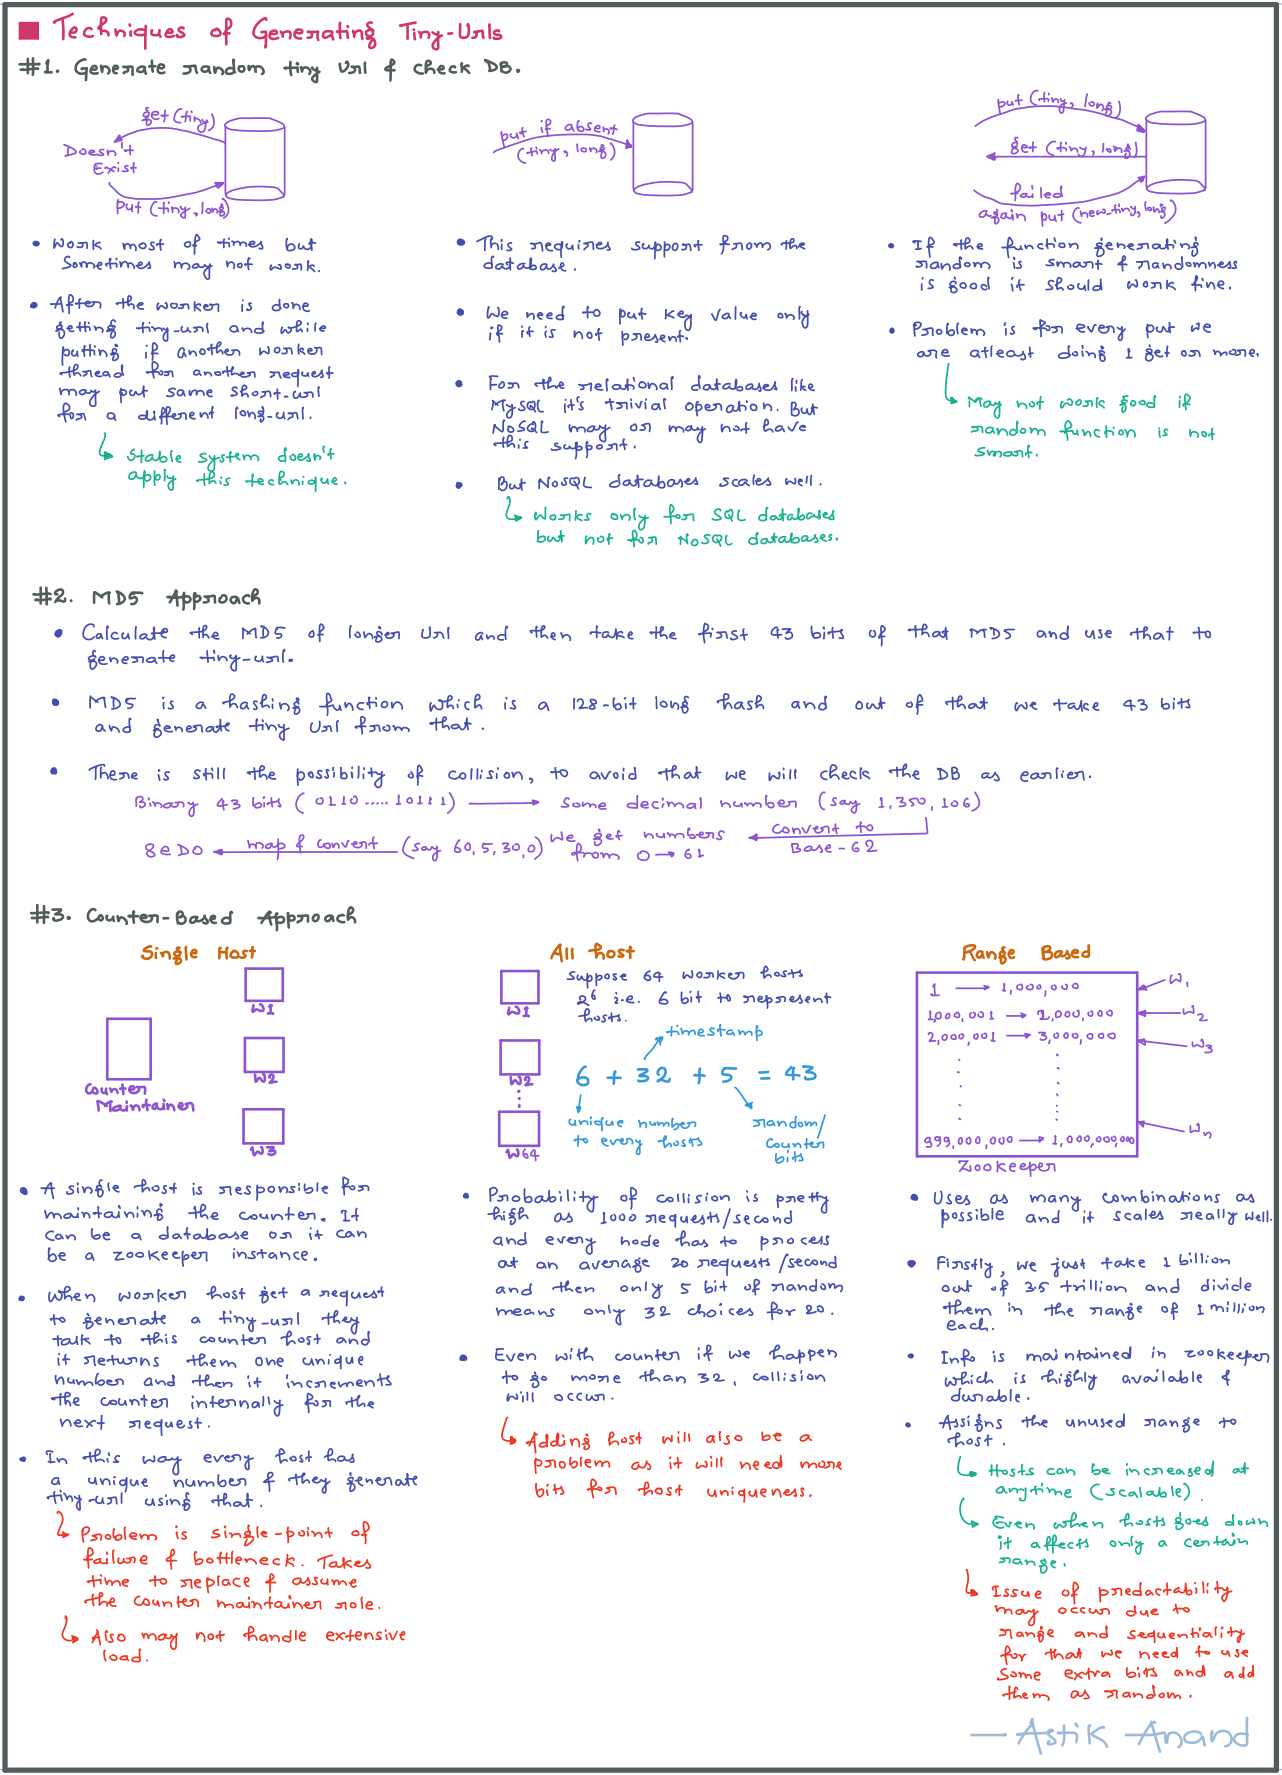 Techniques of Generating Tiny-Urls
#1. Generate random tiny url & check DB.
get (tiny)
Doesn't
Exist
put (tiny, long)
• Work most of times but
Sometimes may not work.
• After the worker is done
getting tiny-url and while
putting if another worker
thread for another request
may put same short-url
for a different long-url.
Stable system doesn't
apply this technique.
put if absent
(tiny, long)
• This requires support from the
database.
• We need to put key value only
if it is not present.
• For the relational databases like
MySQL it's trivial operation. But
NoSQL may or may not have
this support.
• But NoSQL databases scales well.
Works only for SQL databases
but not for NoSQL databases.
put (tiny, long)
get (tiny, long)
failed
again put (new_tiny, long)
• If the function generating
random is smart & randomness
is good it should work fine.
• Problem is for every put we
are atleast doing 1 get or more.
May not work good if
random function is not
smart.
#2. MD5 Approach
• Calculate the MD5 of longer url and then take the first 43 bits of that MD5 and use that to
generate tiny-url.
• MD5 is a hashing function which is a 128-bit long hash and out of that we take 43 bits
and generate tiny url from that.
• There is still the possibility of collision, to avoid that we will check the DB as earlier.
Binary 43 bits ( 0110.....10111) → some decimal number (say 1,350,106)
8eDO ← map & convert (say 60,5,30,0) We get numbers ← convert to
from 0 → 61 Base-62
#3. Counter-Based Approach
Single Host
W1
W2
W3
Counter
Maintainer
• A single host is responsible for
maintaining the counter. It
can be a database or it can
be a zookeeper instance.
• When worker host get a request
to generate a tiny-url they
talk to this counter host and
it returns them one unique
number and then it increments
the counter internally for the
next request.
• In this way every host has
a unique number & they generate
tiny-url using that.
Problem is single-point of
failure & bottleneck. Takes
time to replace & assume
the counter maintainer role.
Also may not handle extensive
load.
All host
W1
W2
W64
Suppose 64 worker hosts
2⁶ i.e. 6 bit to represent
hosts.
timestamp
6 + 32 + 5 = 43
unique number
to every hosts
random/
counter
bits
• Probability of collision is pretty
high as 1000 requests/second
and every node has to process
at an average 20 requests/second
and then only 5 bit of random
means only 32 choices for 20.
• Even with counter if we happen
to go more than 32, collision
will occur.
Adding host will also be a
problem as it will need more
bits for host uniqueness.
Range Based
1 → 1,000,000
1,000,001 → 2,000,000
2,000,001 → 3,000,000
999,000,000 → 1,000,000,000
W1
W2
W3
Wn
Zookeeper
• Uses as many combinations as
possible and it scales really well.
• Firstly, we just take 1 billion
out of 3.5 trillion and divide
them in the range of 1 million
each.
• Info is maintained in zookeeper
which is highly available &
durable.
• Assigns the unused range to
host.
Hosts can be increased at
anytime (scalable).
Even when hosts goes down
it affects only a certain
range.
Issue of predactability
may occur due to
range and sequentiality
for that we need to use
some extra bits and add
them as random.
— Astik Anand